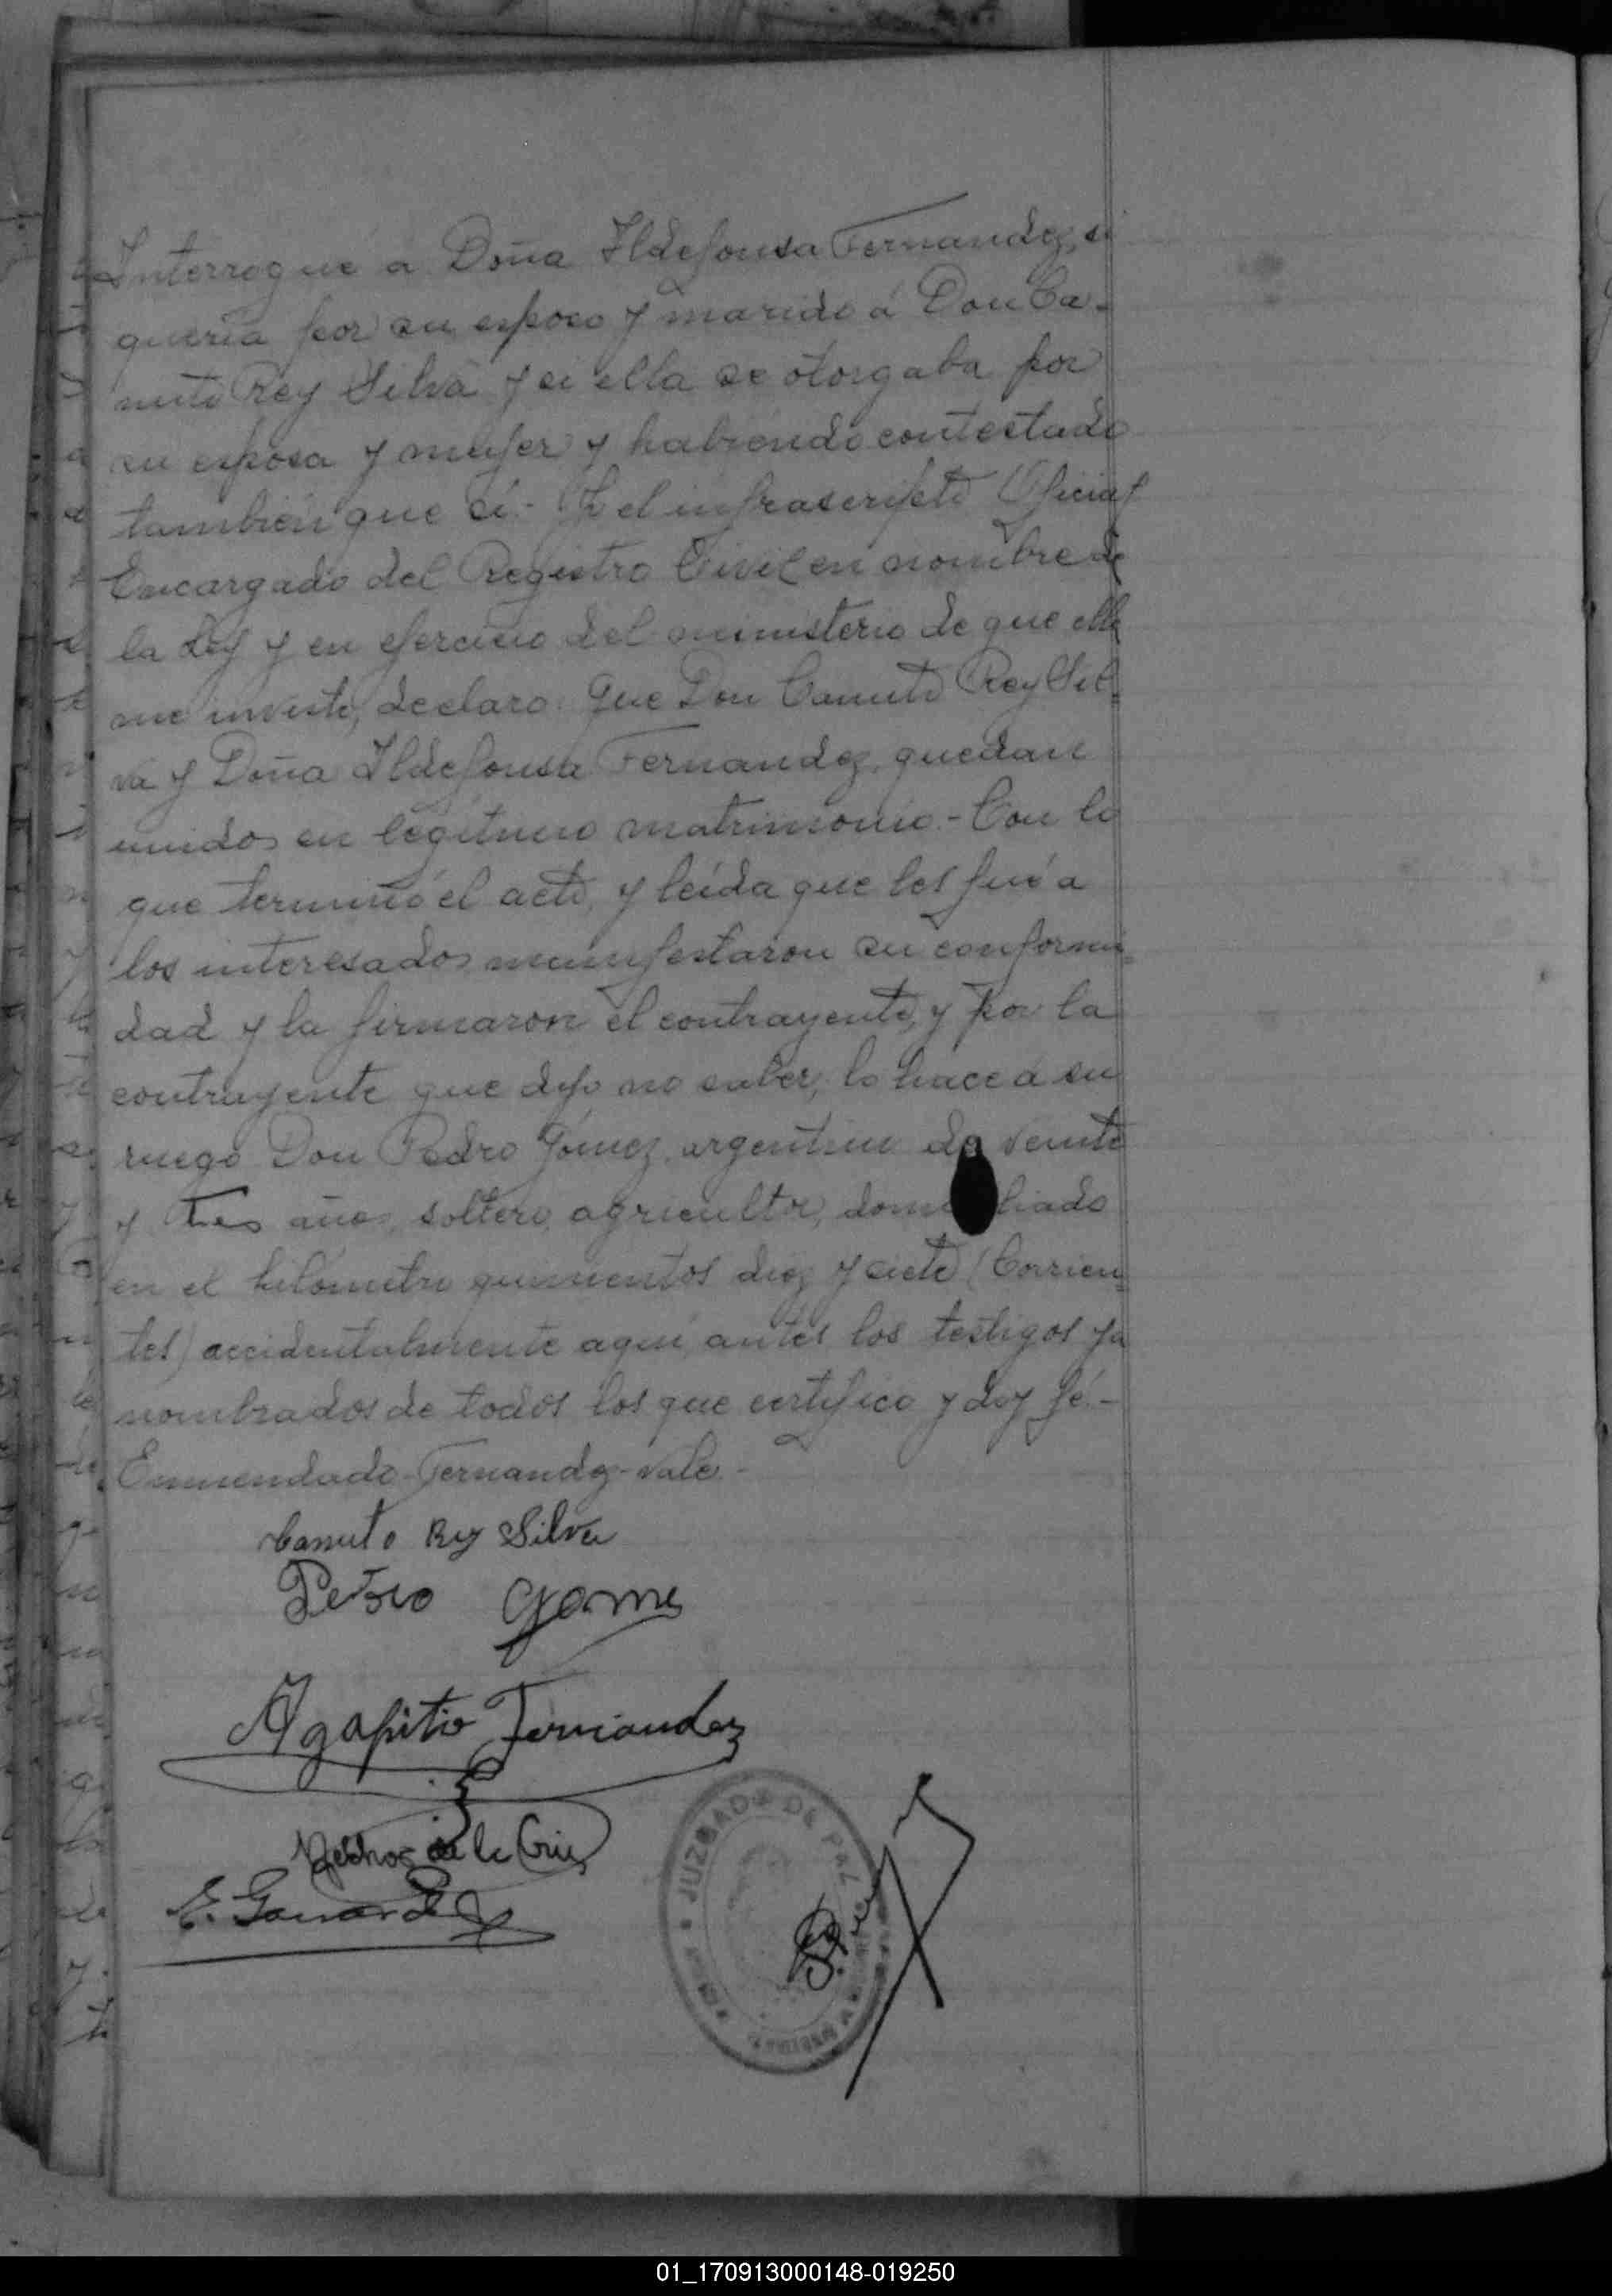 Interrogué a Doña Ildefonsa Fernandez, si
quería por su esposo y marido á Don Ca-
nuto Rey Silva y si ella se otorgaba por
su esposa y mujer y habiendo contestado
también que sí.- Yo el infrascripto Oficial
Encargado del Registro Civil en nombre de
la Ley y en ejercicio del ministerio de que ella
me inviste, declaro: que Don Canuto Rey Sil-
va y Doña Ildefonsa Fernandez, quedan
unidos en legítimo matrimonio.- Con lo
que terminó el acto, y leída que les fué a
los interesados manifestaron su conformi=
dad y la firmaron el contrayente, y por la
contrayente que dijo no saber, lo hace á su
ruego Don Pedro Gómez, argentino de veinte
y tres años, soltero, agricultor, domiciliado
en el kilómetro quinientos diez y siete (Corrien=
tes) accidentalmente aquí, antes los testigos ya
nombrados de todos los que certifico y doy fé.-
Enmendado-Fernandez-Vale.-
Canuto Rey Silva
Pedro Gomes
Agapito Fernandez
Melchor de la Cruz
E.
JUZGADO DE PAZ
01_170913000148-019250